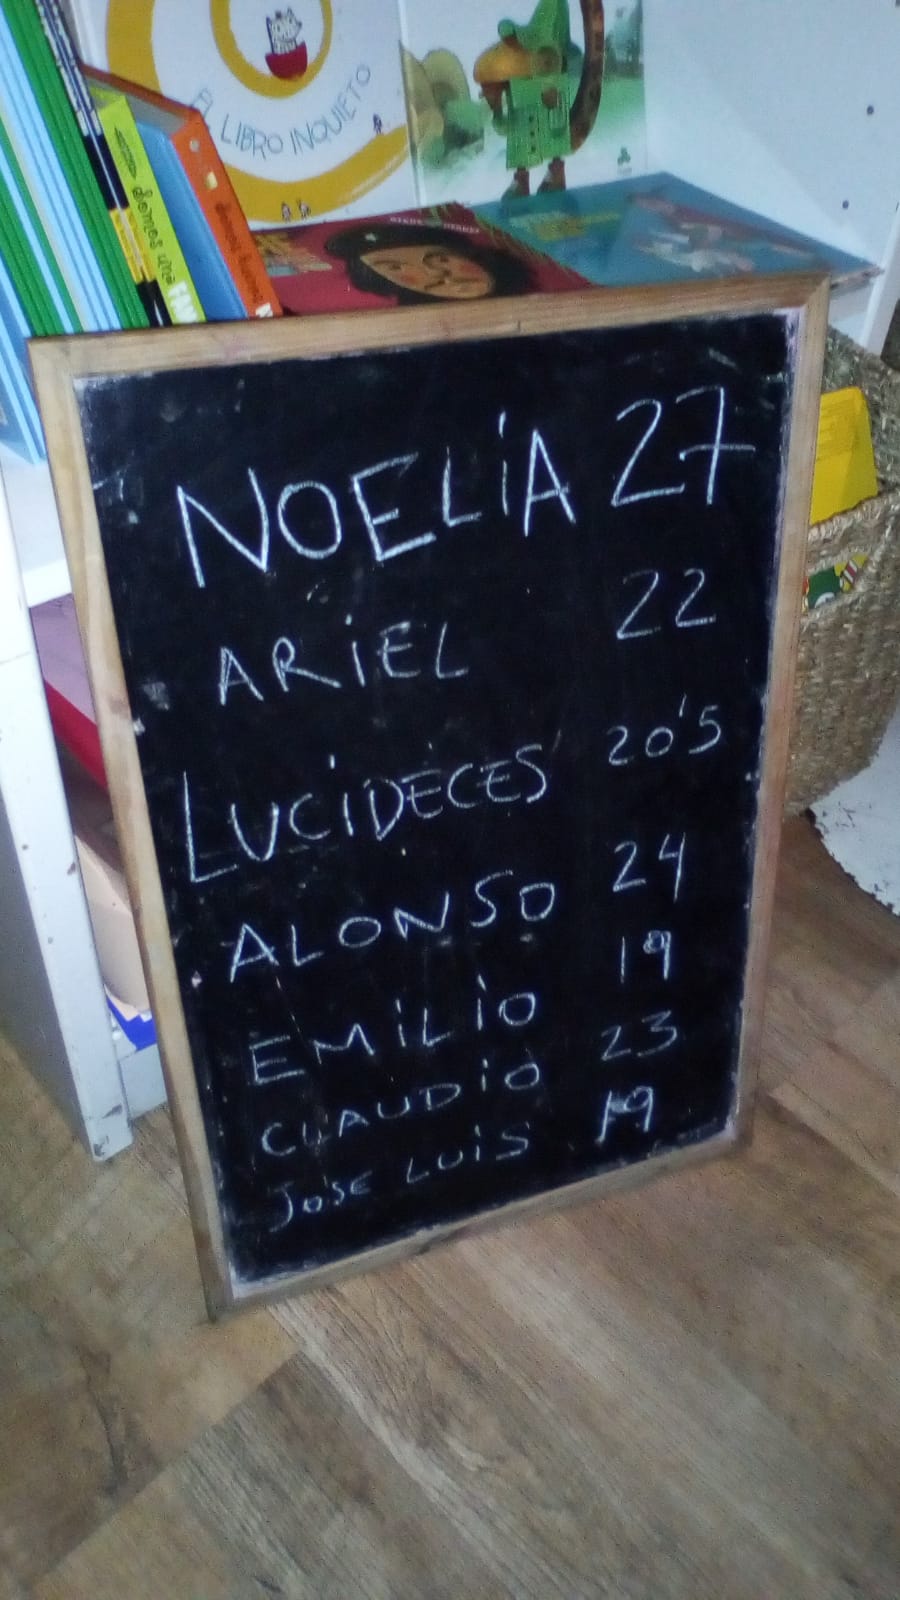 EL LIBRO INQUIETO
Somos una
NOELiA 27
ARiEL 22
LUCiDECES 20'5
ALONSO 24
EMiLiO 19
CLAUDiO 23
JOSE LUiS 19